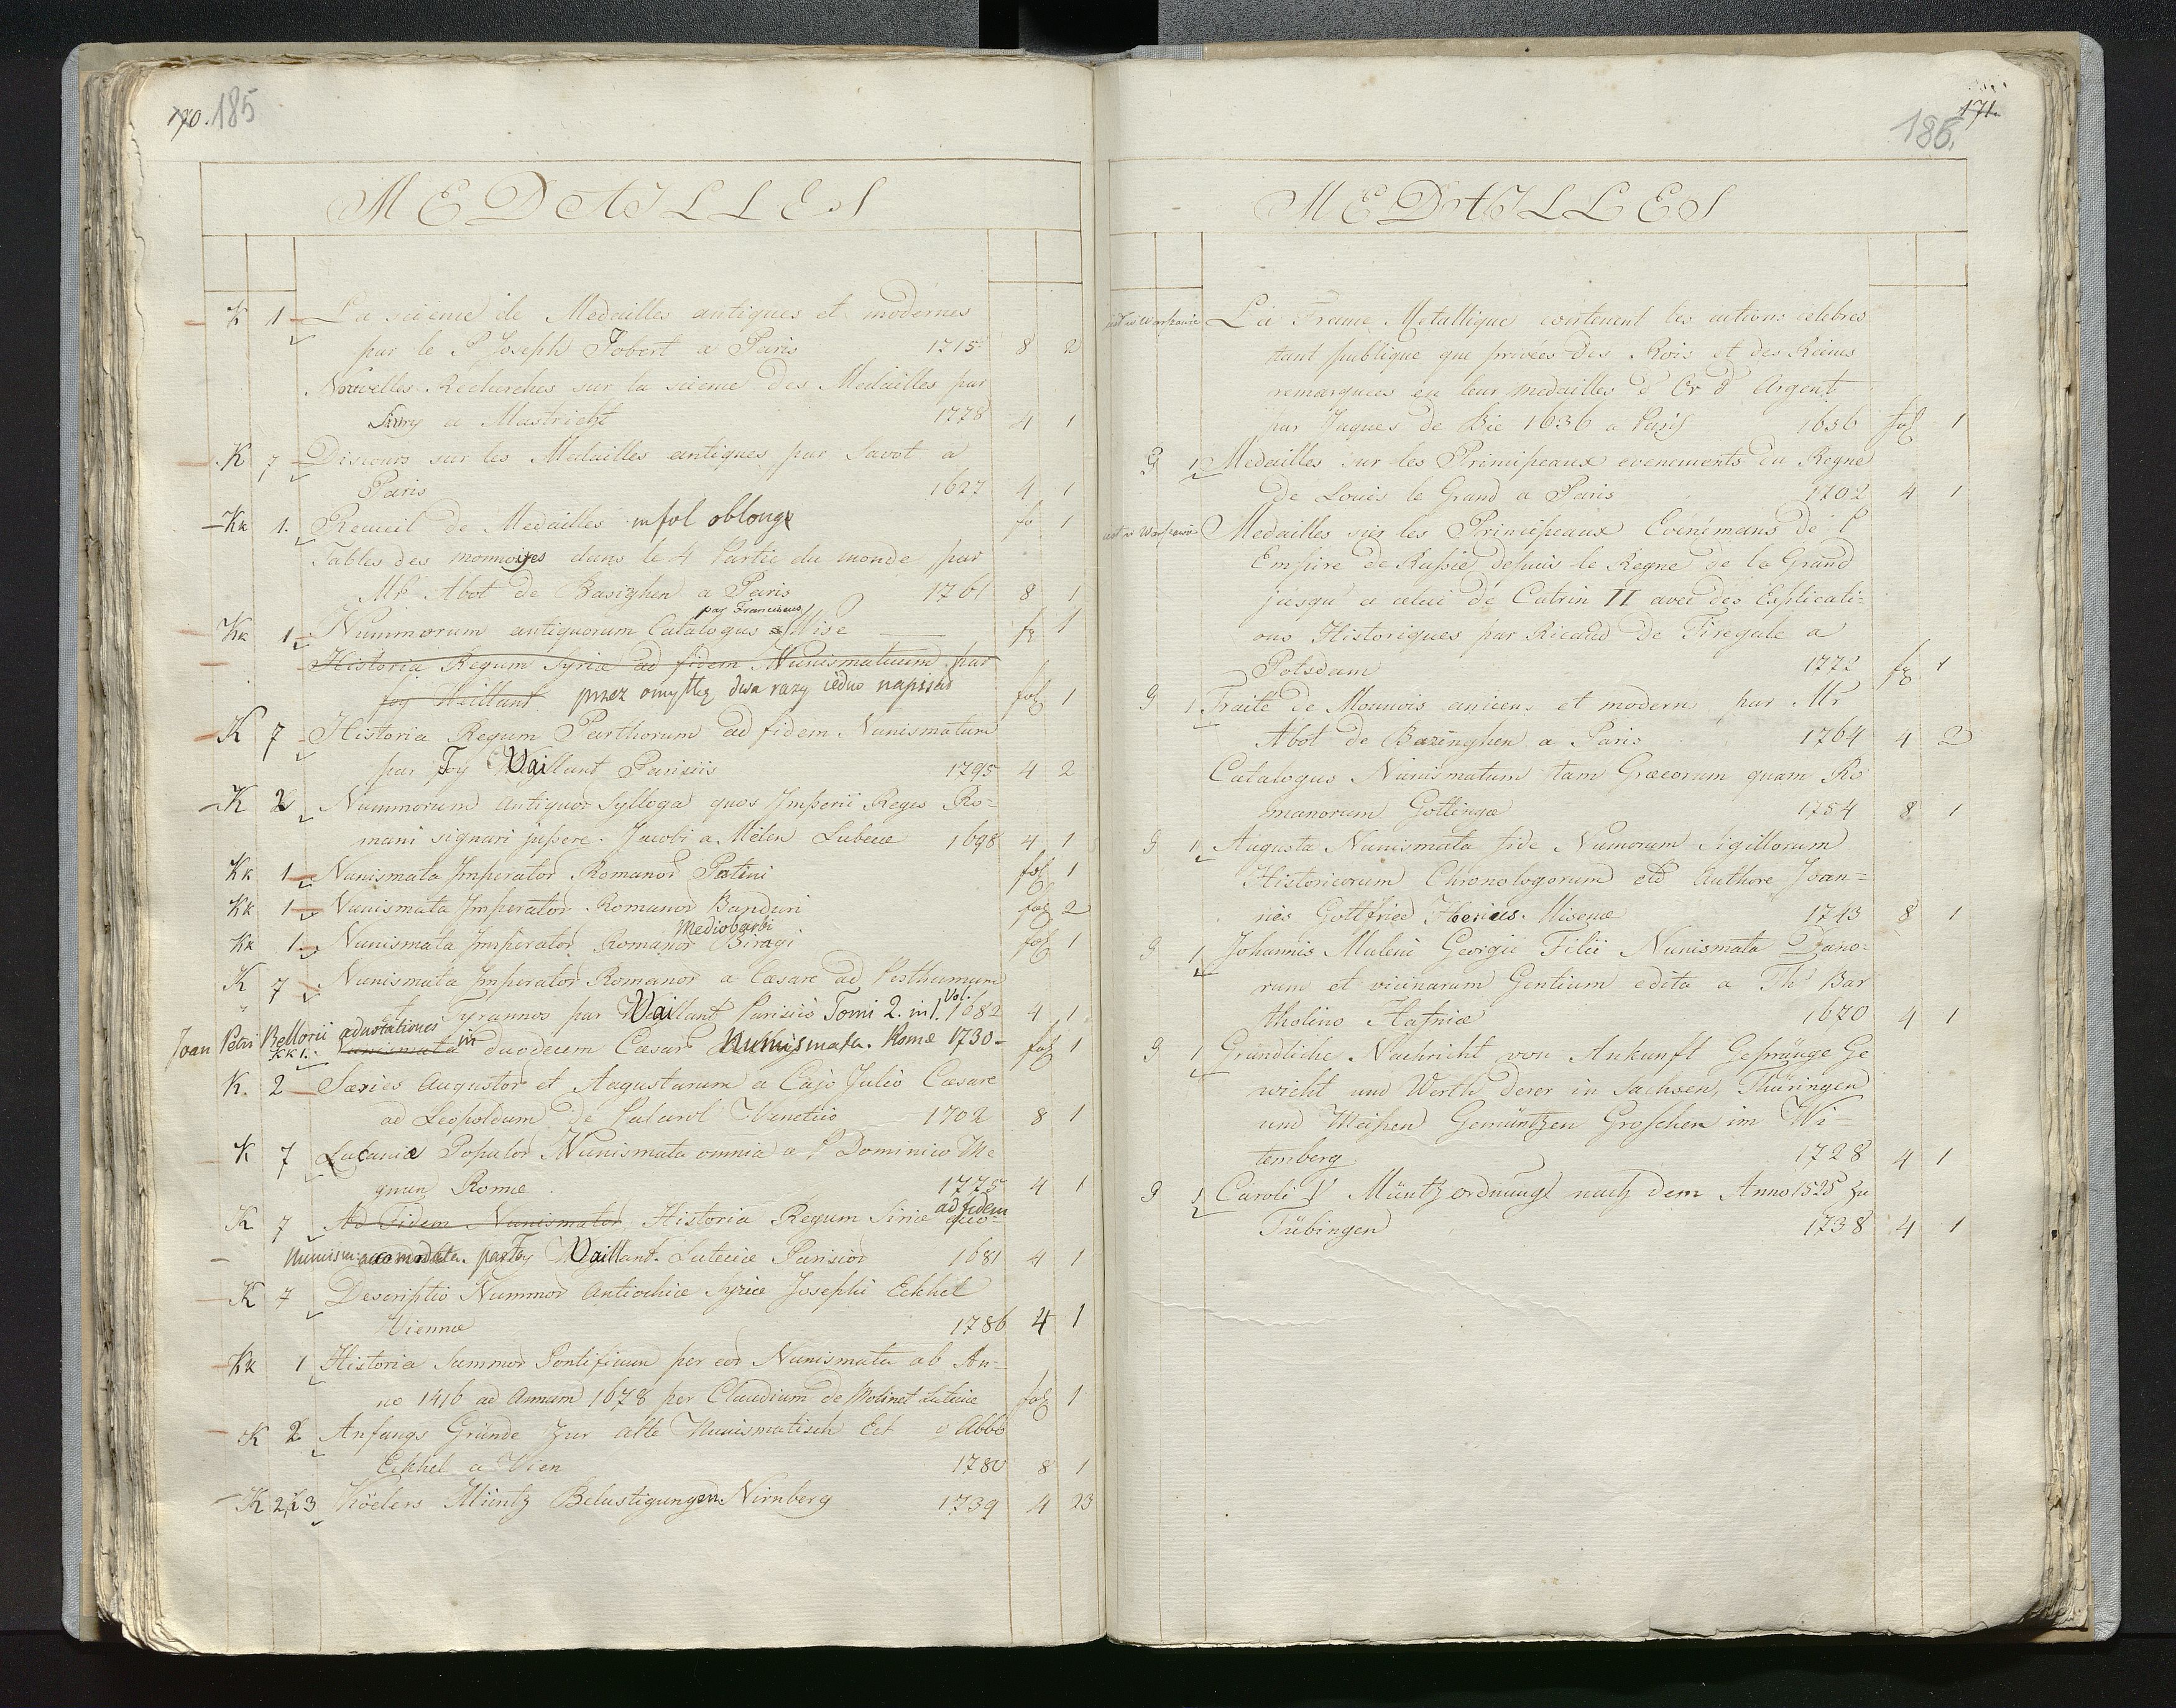 170. 185
MEDAILLES
K 1 La sciénce de Medailles antiques et modernes
par le P Joseph Jobert a Paris 1715 8 2
Nouvelles Recherches sur la science des Medailles par
a Mastricht 1778 4 1
K 7 Discours sur les Medailles antiques par Savot a
Paris 1627 4 1
Kk 1. Recueil de Medailles in fol oblongo fo 1
Tables des monnoyes dans le 4 Partie du monde par
Mr Abot de Basighen a Paris 1761 8 1
par Franciscus
Kk 1 Nummorum antiquorum Catalogus a Wise fo 1
Historia Regum Syriæ ad fidem Numismatuum par
foy Waillant przez omyłkę dwa razy iedno napisano fol 1
K 7 Historia Regum Parthorum ad fidem Numismatum
par Foy Vaillant Parisiis 1795 4 2
K 2 Nummorum Antiquor Sylloga quos Imperii Reges Ro=
mani signari jussere. Jacobi a Mélen Lubecæ 1698 4 1
Kk 1 Numismata Imperator Romanor Patini fol 1
Kk 1 Numismata Imperator Romanor Banduri fol 2
Mediobarbi
Kk 1 Numismata Imperator Romanor Biragi fol 1
K 7 Numismata Imperator Romanor a Cæsare ad Posthumum
et Tyrannos par Vaillant Parisiis Tomi 2. in 1. Vol. 1682 4 1
Joan Petri Bellorii adnotationes
KK 1. Numismata in duodecim Cæsar Numismata. Romæ 1730 fol 1
K. 2 Særies Augustor et Augustarum a Cajo Julio Cæsare
ad Leopoldum de Palarol Venetiis 1702 8 1
K 7 Lucaniæ Populor Numismata omnia a P Dominico Ma
gnan Romæ 1775 4 1
ad fidem
K 7 Ad Fidem Numismator Historia Regum Siriæ
Numism: accomodata. par Foy Vaillant. Luteciæ Parisior 1681 4 1
K 7 Descriptio Nummor Antiochiæ Syriæ Josephi Eckhel
Viennæ 1786 4 1
Kk 1 Historia Summor Pontificum per eor Numismata ab An=
no 1416 ad Annum 1678 per Claudium de Molinet Luteciæ fol 1
K 2 Anfangs Gründe Zur alte Numismatisch Ect v Abbé
Eckhel a Wien 1780 8 1
K 2, i 3 Köelers Müntz Belustigungen Nirnberg 1739 4 23
171.
186.
MEDAILLES
iest w Warszawie La France Metallique contenent les actions celebres
tant publique que privées des Rois et des Reines
remarquées en leur medailles d'Or d'Argent
par Jaques de Bie 1636 a Paris 1636 fol 1
9 1 Medailles sur les Principeaux evenements du Regne
de Louis le Grand a Paris 1702 4 1
iest w Warszawie Medailles sur les Principeaux Evénémans de l'
Empire de Russie depuis le Regne de la Grand
jusqu'a celui de Catrin II avec des Explicati=
ons Historiques par Ricaud de Tiregale a
Potsdam 1772 fo 1
9 1 Traité de Monnois anciens et modern par Mr
Abot de Bazinghen a Paris 1764 4 2
Catalogus Numismatum tam Græcorum quam Ro
manorum Gottingæ 1754 8 1
9 1 Augusta Numismata fide Numorum Sigillorum
Historicorum Chronologorum etc Authore Joan=
nes Gottfried Misenæ 1743 8 1
9 1 Johannis Muleni Georgii Filii Numismata Dano=
rum et vicinarum Gentium edita a Th Bar
tholino Hafniæ 1670 4 1
9 1 Gründliche Nachricht von Ankunft Gepränge Ge
wicht und Werth derer in Sachsen, Thüringen
und Meissen Gemüntzen Groschen im Wi=
temberg 1728 4 1
9 1 Caroli V Müntz ordnungt nach dem Anno 1525 zu
Tübingen 1738 4 1